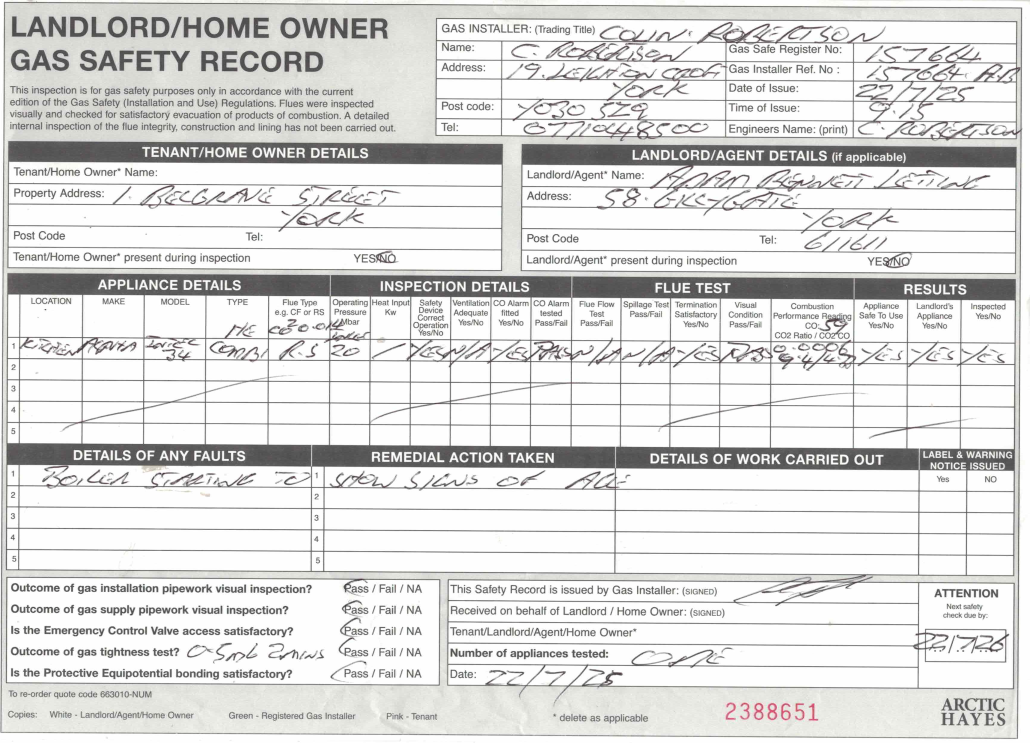 LANDLORD/HOME OWNER
GAS SAFETY RECORD
This inspection is for gas safety purposes only in accordance with the current
edition of the Gas Safety (Installation and Use) Regulations. Flues were inspected
visually and checked for satisfactory evacuation of products of combustion. A detailed
internal inspection of the flue integrity, construction and lining has not been carried out.
GAS INSTALLER: (Trading Title) COLIN. ROBERTSON
Name: C. ROBERTSON
Gas Safe Register No: 157664
Address: 19. LEIGHTON CROFT
Gas Installer Ref. No : 157664. A.B
YORK
Date of Issue: 22/7/25
Post code: YO30 5Z9
Time of Issue: 9.15
Tel: 07710448500
Engineers Name: (print) C. ROBERTSON
TENANT/HOME OWNER DETAILS
Tenant/Home Owner* Name:
Property Address: 1. BELGRAVE STREET
YORK
Post Code Tel:
Tenant/Home Owner* present during inspection YES/NO
LANDLORD/AGENT DETAILS (if applicable)
Landlord/Agent* Name: ADAM BENNETT LETTING
Address: 58. GILLYGATE
YORK
Post Code Tel: 611611
Landlord/Agent* present during inspection YES/NO
APPLIANCE DETAILS INSPECTION DETAILS FLUE TEST RESULTS
LOCATION MAKE MODEL TYPE Flue Type e.g. CF or RS Operating Pressure Mbar Heat Input Kw Safety Device Correct Operation Yes/No Ventilation Adequate Yes/No CO Alarm fitted Yes/No CO Alarm tested Pass/Fail Flue Flow Test Pass/Fail Spillage Test Pass/Fail Termination Satisfactory Yes/No Visual Condition Pass/Fail Combustion Performance Reading CO: 59 CO2 Ratio / CO2 CO Appliance Safe To Use Yes/No Landlord's Appliance Yes/No Inspected Yes/No
HE
1 KITCHEN ALPHA INTEC 34 COMBI R.S 20 / YES N/A YES PASS N/A N/A YES 0.0006 9.4 YES YES YES
2
3
4
5
DETAILS OF ANY FAULTS REMEDIAL ACTION TAKEN DETAILS OF WORK CARRIED OUT LABEL & WARNING NOTICE ISSUED
Yes NO
1 BOILER STARTING TO 1 SHOW SIGNS OF AGE
2 2
3 3
4 4
5 5
Outcome of gas installation pipework visual inspection? Pass / Fail / NA
Outcome of gas supply pipework visual inspection? Pass / Fail / NA
Is the Emergency Control Valve access satisfactory? Pass / Fail / NA
Outcome of gas tightness test? 0-5mb 2mins Pass / Fail / NA
Is the Protective Equipotential bonding satisfactory? Pass / Fail / NA
This Safety Record is issued by Gas Installer: (SIGNED)
Received on behalf of Landlord / Home Owner: (SIGNED)
Tenant/Landlord/Agent/Home Owner*
Number of appliances tested: ONE
Date: 22/7/25
ATTENTION
Next safety
check due by:
22/7/26
To re-order quote code 663010-NUM
Copies: White - Landlord/Agent/Home Owner Green - Registered Gas Installer Pink - Tenant
* delete as applicable
2388651
ARCTIC
HAYES